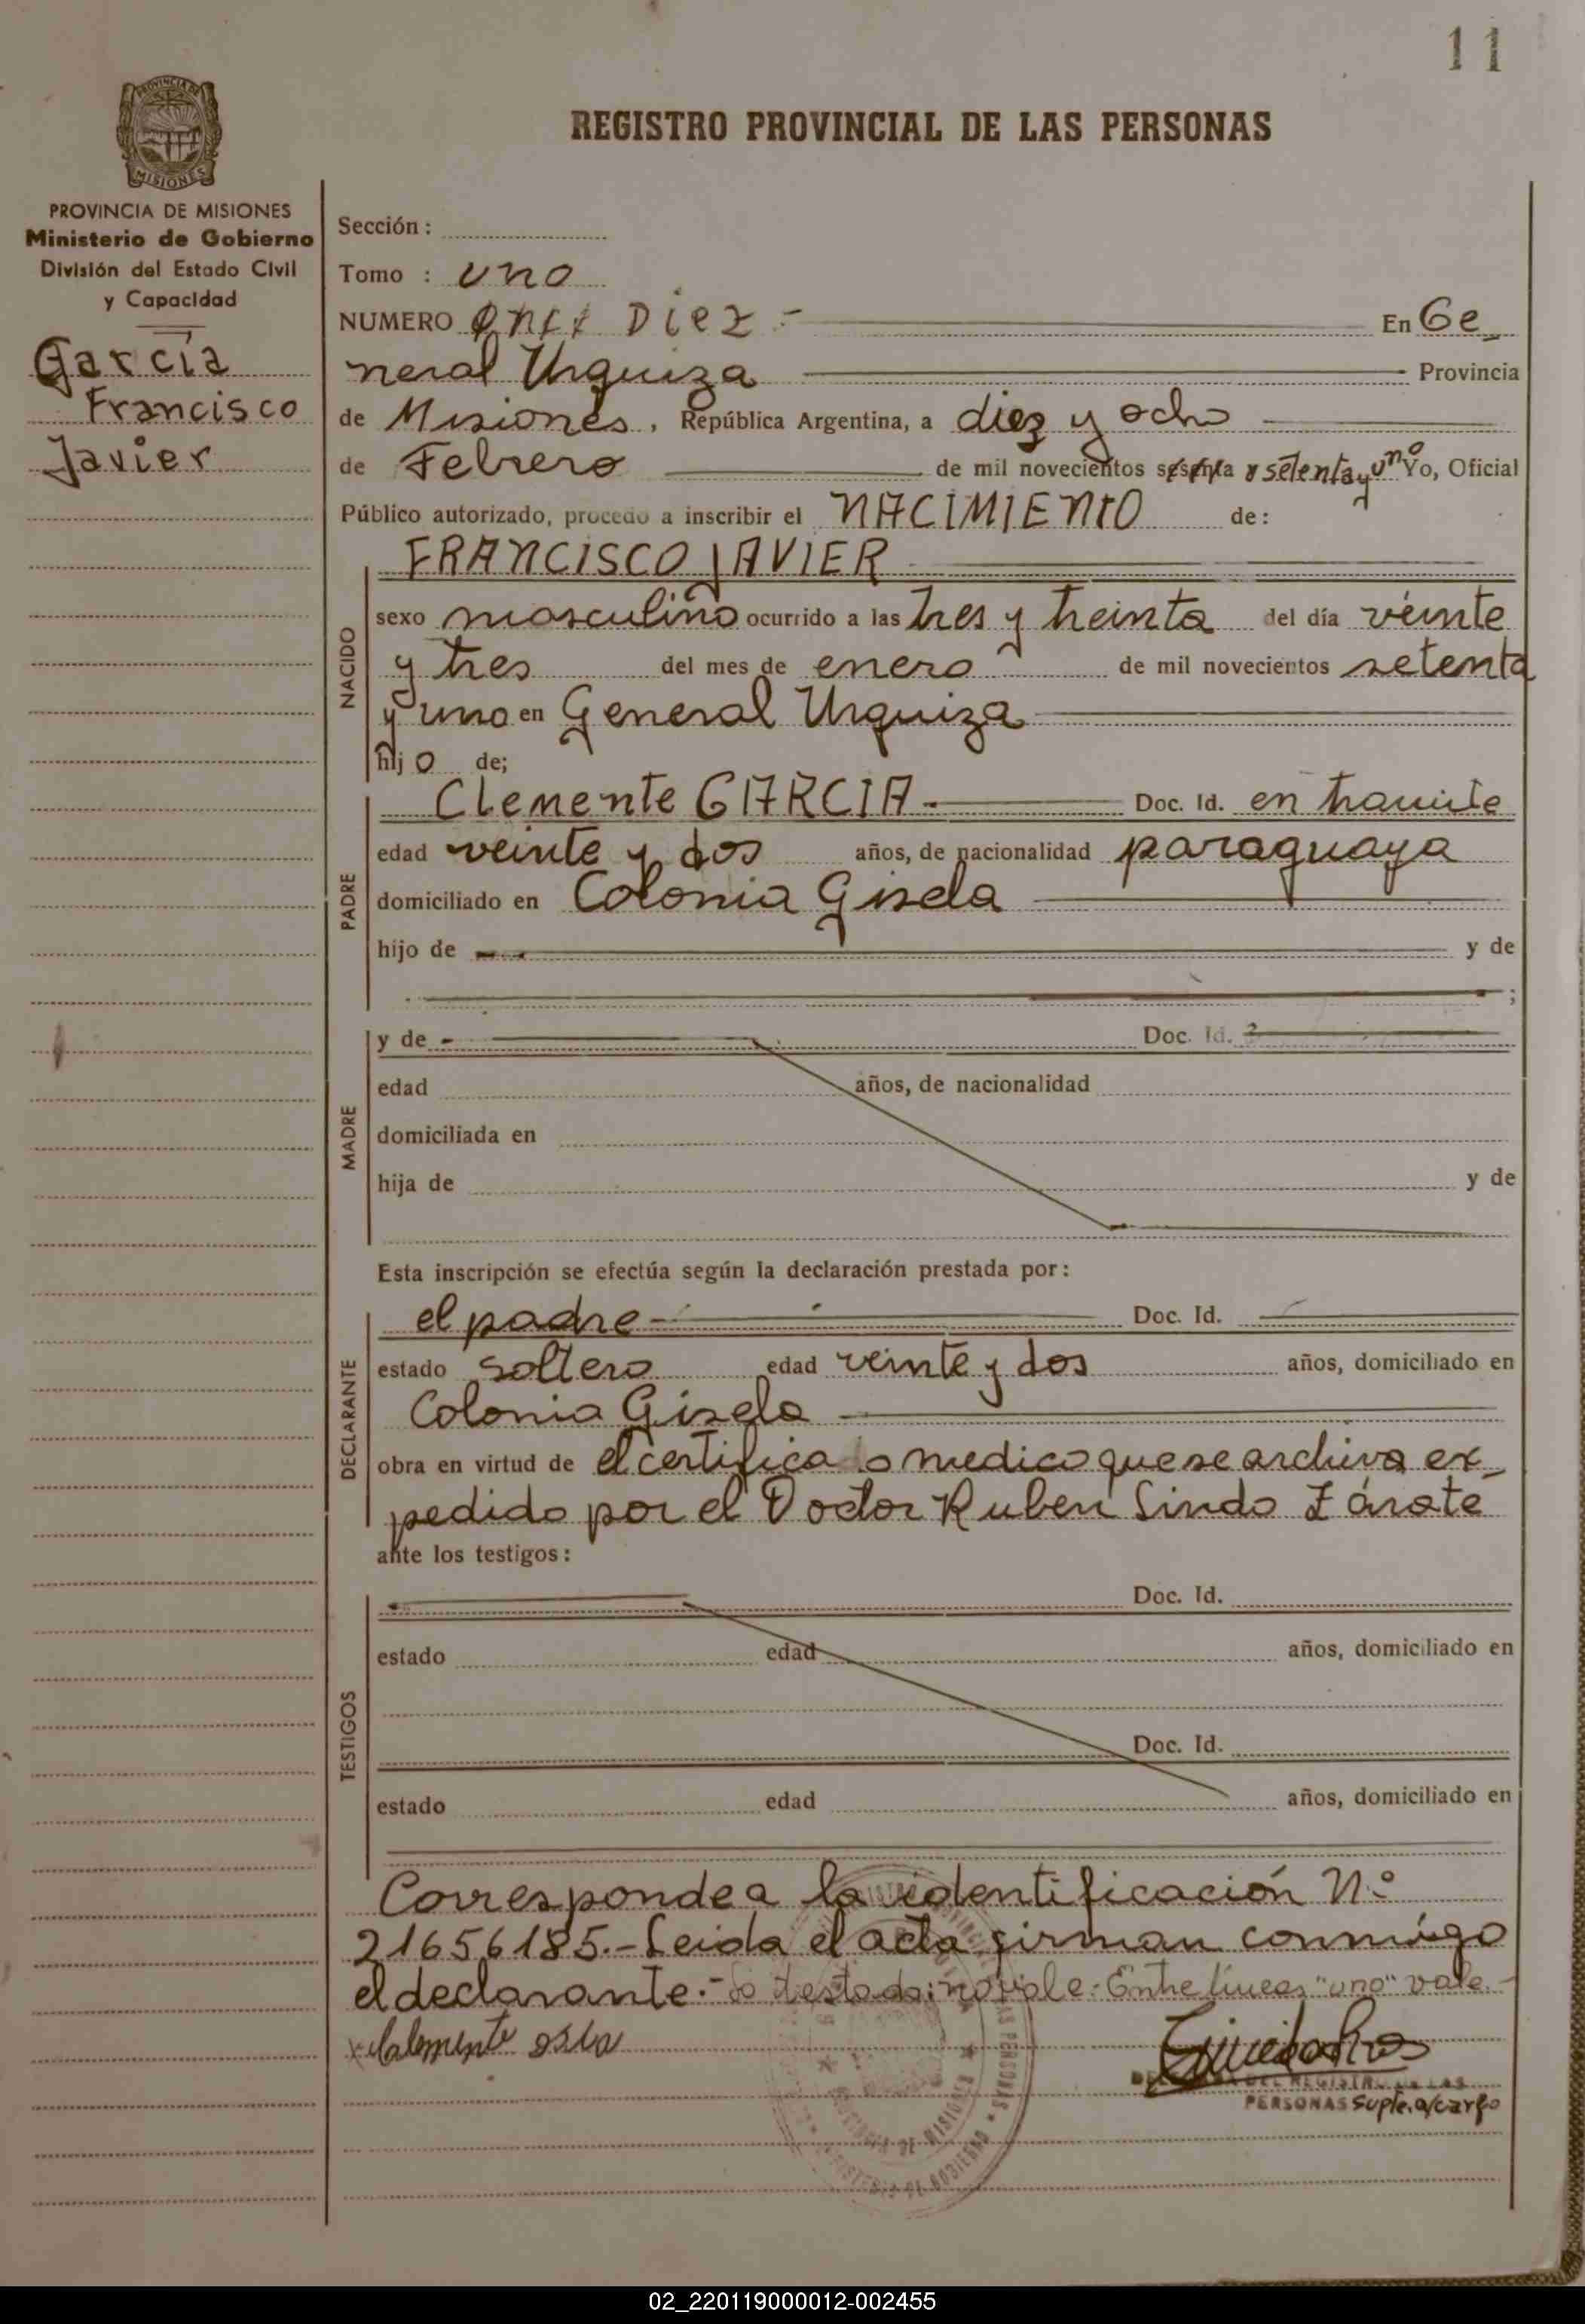 11
REGISTRO PROVINCIAL DE LAS PERSONAS
PROVINCIA DE MISIONES
PROVINCIA DE MISIONES
Ministerio de Gobierno
División del Estado Civil
y Capacidad
García
Francisco
Javier
Sección :
Tomo : uno
NUMERO once Diez.- En Ge_
neral Urquiza Provincia
de Misiones, República Argentina, a diez y ocho
de Febrero de mil novecientos sesenta y setenta y uno Yo, Oficial
Público autorizado, procedo a inscribir el NACIMIENTO de:
FRANCISCO JAVIER
NACIDO
sexo masculino ocurrido a las tres y treinta del día veinte
y tres del mes de enero de mil novecientos setenta
y uno en General Urquiza
hijo de;
PADRE
Clemente GARCIA.- Doc. Id. en tramite
edad veinte y dos años, de nacionalidad paraguaya
domiciliado en Colonia Gisela
hijo de y de
;
MADRE
y de Doc. Id.
edad años, de nacionalidad
domiciliada en
hija de y de
Esta inscripción se efectúa según la declaración prestada por:
DECLARANTE
el padre- Doc. Id.
estado soltero edad veinte y dos años, domiciliado en
Colonia Gisela
obra en virtud de el certificado medico que se archiva ex_
pedido por el Doctor Ruben Lindo Zárate
ante los testigos:
TESTIGOS
Doc. Id.
estado edad años, domiciliado en
Doc. Id.
estado edad años, domiciliado en
Corresponde a la identificación N.º
21656185.- Leida el acta firman conmigo
el declarante.- Lo testado: no vale. Entre líneas "uno" vale.-
DEL REGISTRO DE LAS
PERSONAS Suple. a/cargo
02_220119000012-002455